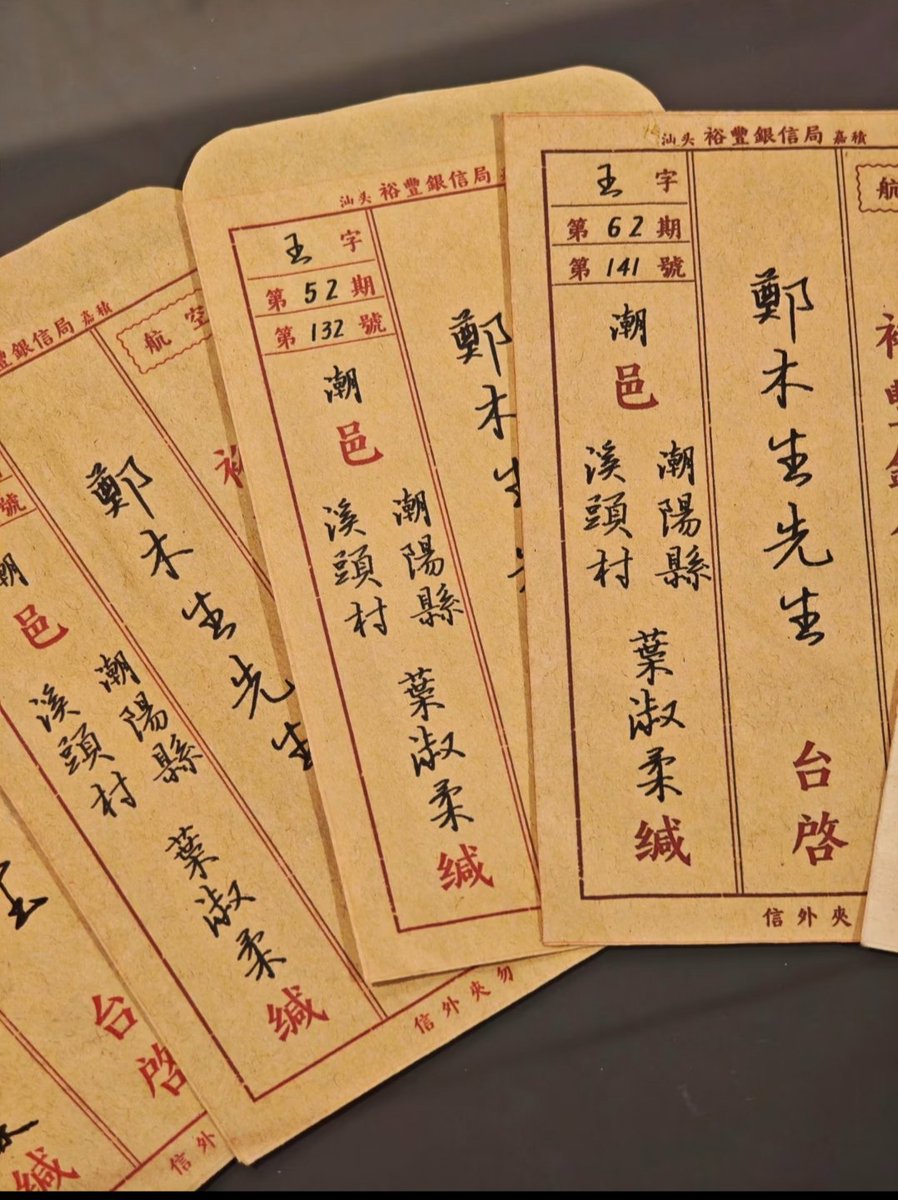 汕头 裕豐銀信局 嘉積
航
鄭木生先生 台啓
王字
第62期
第141號
潮邑
潮陽縣
溪頭村
葉淑柔 缄
夾外信
汕头 裕豐銀信局
鄭木生
王字
第52期
第132號
潮邑
潮陽縣
溪頭村
葉淑柔 缄
勿夾外信
豐銀信局 嘉積
航空
鄭木生先生 台啓
號
潮邑
潮陽縣
溪頭村
葉淑柔 缄
外信
缄